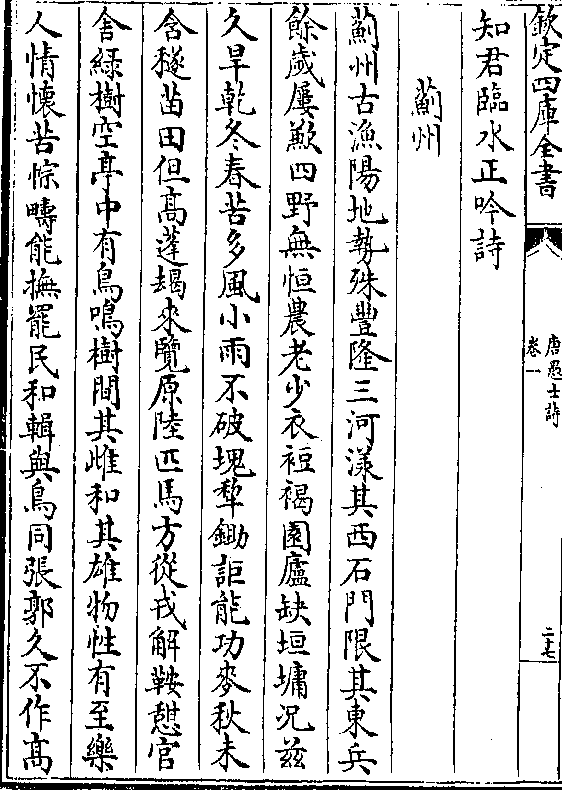 欽定四庫全書
唐愚士詩
卷一
二七
知君臨水正吟詩
薊州
薊州古漁陽地勢殊豐隆三河漾其西石門限其東兵
餘歲屢歉四野無恒農老少衣裋褐園廬缺垣墉况兹
久旱乾冬春苦多風小雨不破塊犂鋤詎能功麥秋未
含穟苗田但髙蓬朅來覽原陸匹馬方從戎解鞍憇官
舍綠樹空亭中有鳥鳴樹間其雌和其雄物性有至樂
人情懷苦悰疇能撫罷民和輯與鳥同張郭久不作髙